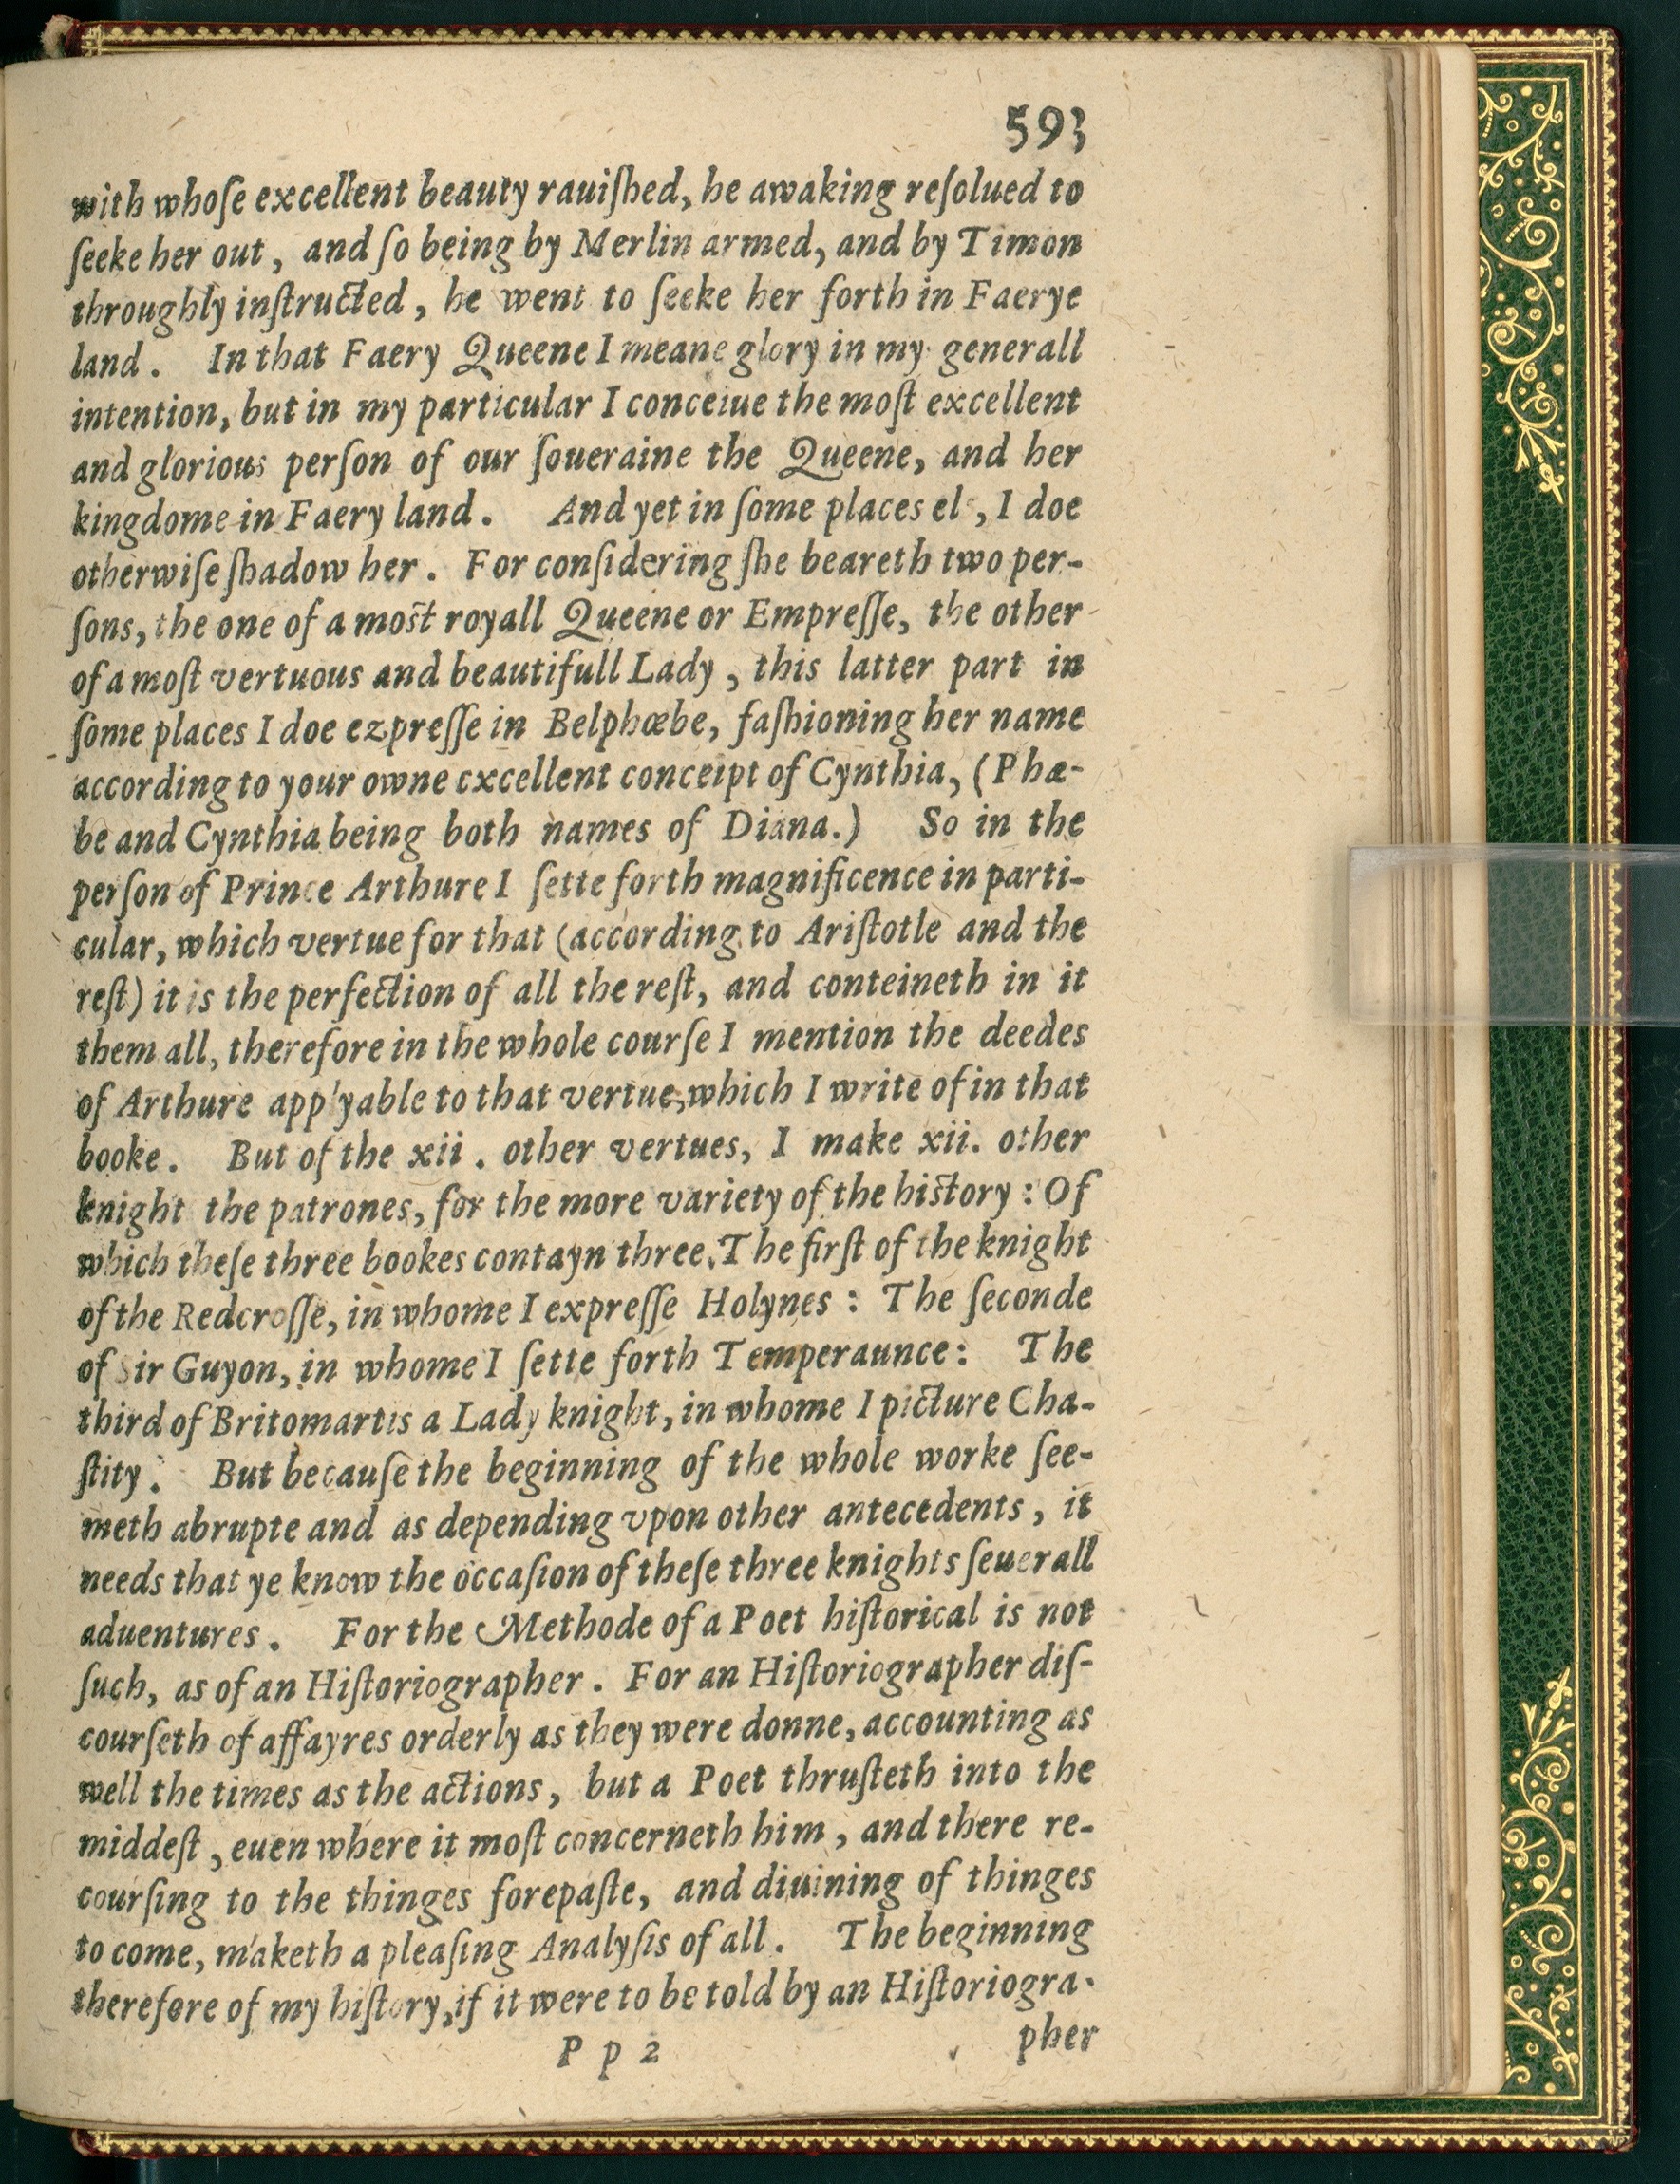 593
with whoſe excellent beauty rauiſhed, he awaking reſolued to
ſeeke her out, and ſo being by Merlin armed, and by Timon
throughly inſtructed, he went to ſeeke her forth in Faerye
land. In that Faery Queene I meane glory in my generall
intention, but in my particular I conceiue the moſt excellent
and glorious perſon of our ſoueraine the Queene, and her
kingdome in Faery land. And yet in ſome places els, I doe
otherwiſe ſhadow her. For conſidering ſhe beareth two per-
ſons, the one of a most royall Queene or Empreſſe, the other
of a moſt vertuous and beautifull Lady, this latter part in
ſome places I doe ezpreſſe in Belphœbe, faſhioning her name
according to your owne excellent conceipt of Cynthia, (Phæ-
be and Cynthia being both names of Diana.) So in the
perſon of Prince Arthure I ſette forth magnificence in parti-
cular, which vertue for that (according to Ariſtotle and the
reſt) it is the perfection of all the reſt, and conteineth in it
them all, therefore in the whole courſe I mention the deedes
of Arthure applyable to that vertue, which I write of in that
booke. But of the xii. other vertues, I make xii. other
knight the patrones, for the more variety of the history: Of
which theſe three bookes contayn three. The firſt of the knight
of the Redcroſſe, in whome I expreſſe Holynes: The ſeconde
of Sir Guyon, in whome I ſette forth Temperaunce: The
third of Britomartis a Lady knight, in whome I picture Cha-
ſtity. But becauſe the beginning of the whole worke ſee-
meth abrupte and as depending vpon other antecedents, it
needs that ye know the occaſion of theſe three knights ſeuerall
aduentures. For the Methode of a Poet hiſtorical is not
ſuch, as of an Hiſtoriographer. For an Hiſtoriographer diſ-
courſeth of affayres orderly as they were donne, accounting as
well the times as the actions, but a Poet thruſteth into the
middeſt, euen where it moſt concerneth him, and there re-
courſing to the thinges forepaſte, and diuining of thinges
to come, maketh a pleaſing Analyſis of all. The beginning
therefore of my hiſtory, if it were to be told by an Hiſtoriogra-
P p 2 pher